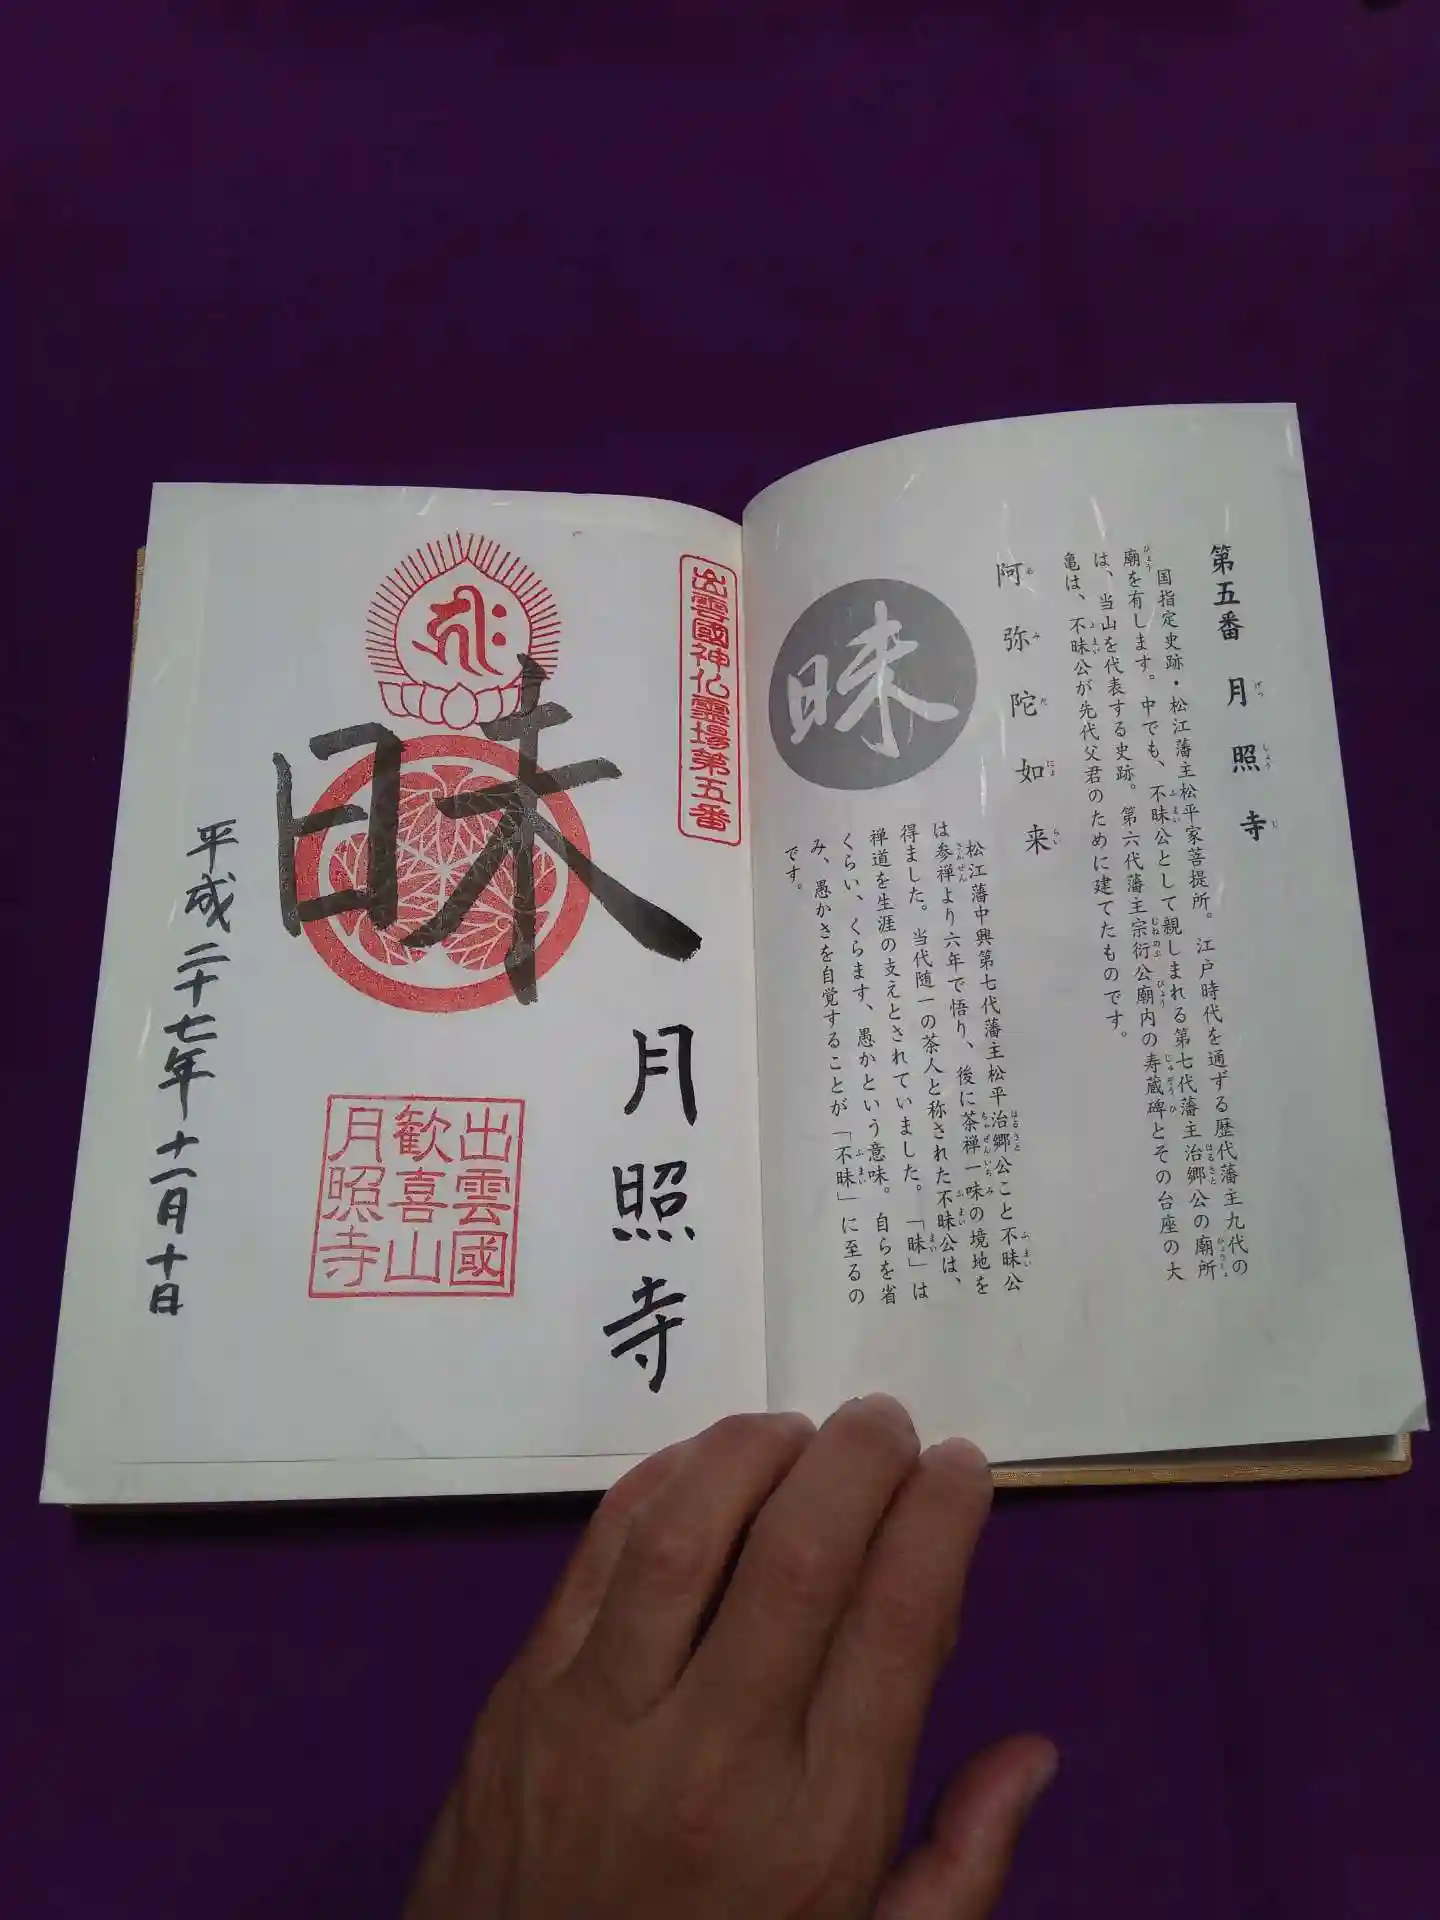 第五番 月照寺
国指定史跡・松江藩主松平家菩提所。江戸時代を通ずる歴代藩主九代の
廟を有します。中でも、不昧公として親しまれる第七代藩主治郷公の廟所
は、当山を代表する史跡。第六代藩主宗衍公廟内の寿蔵碑とその台座の大
亀は、不昧公が先代父君のために建てたものです。
阿弥陀如来
昧
松江藩中興第七代藩主松平治郷公こと不昧公
は参禅より六年で悟り、後に茶禅一味の境地を
得ました。当代随一の茶人と称された不昧公は、
禅道を生涯の支えとされていました。「昧」は
くらい、くらます、愚かという意味。自らを省
み、愚かさを自覚することが「不昧」に至るの
です。
出雲國神仏霊場第五番
月照寺
昧
出雲國
歓喜山
月照寺
平成二十七年十一月十日